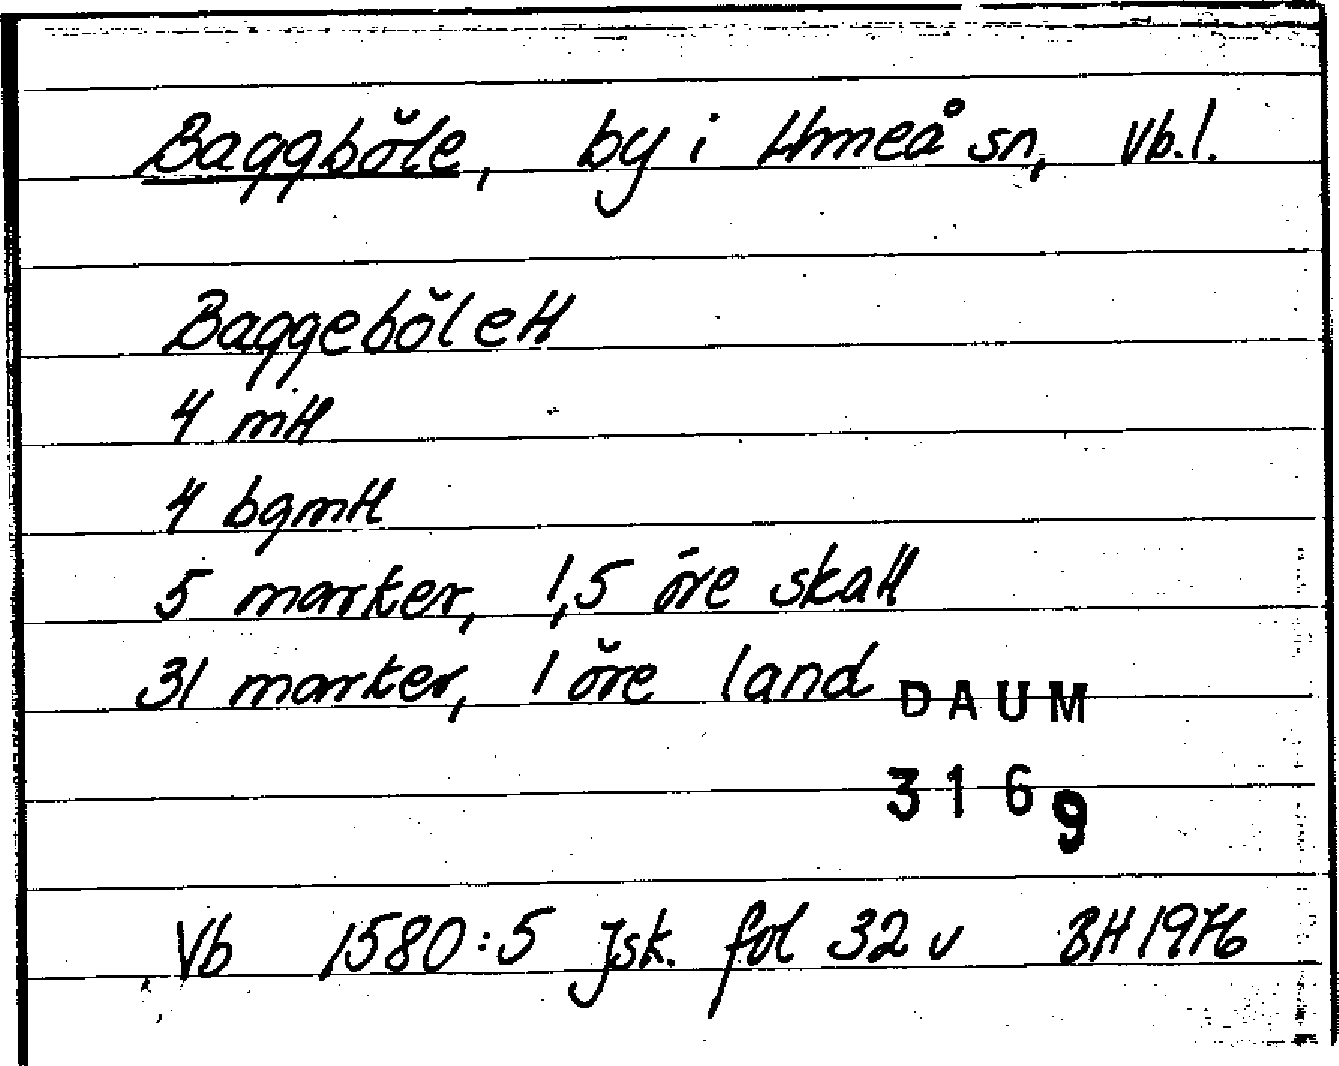 Baggböle, by i Umeå sn, Vb.l.
Baggebölett
4 mtt
4 bgmtt
5 marker, 1,5 öre skatt
31 marker, 1 öre land
DAUM
3169
Vb 1580:5 Jsk. fol 32 v BH 1976